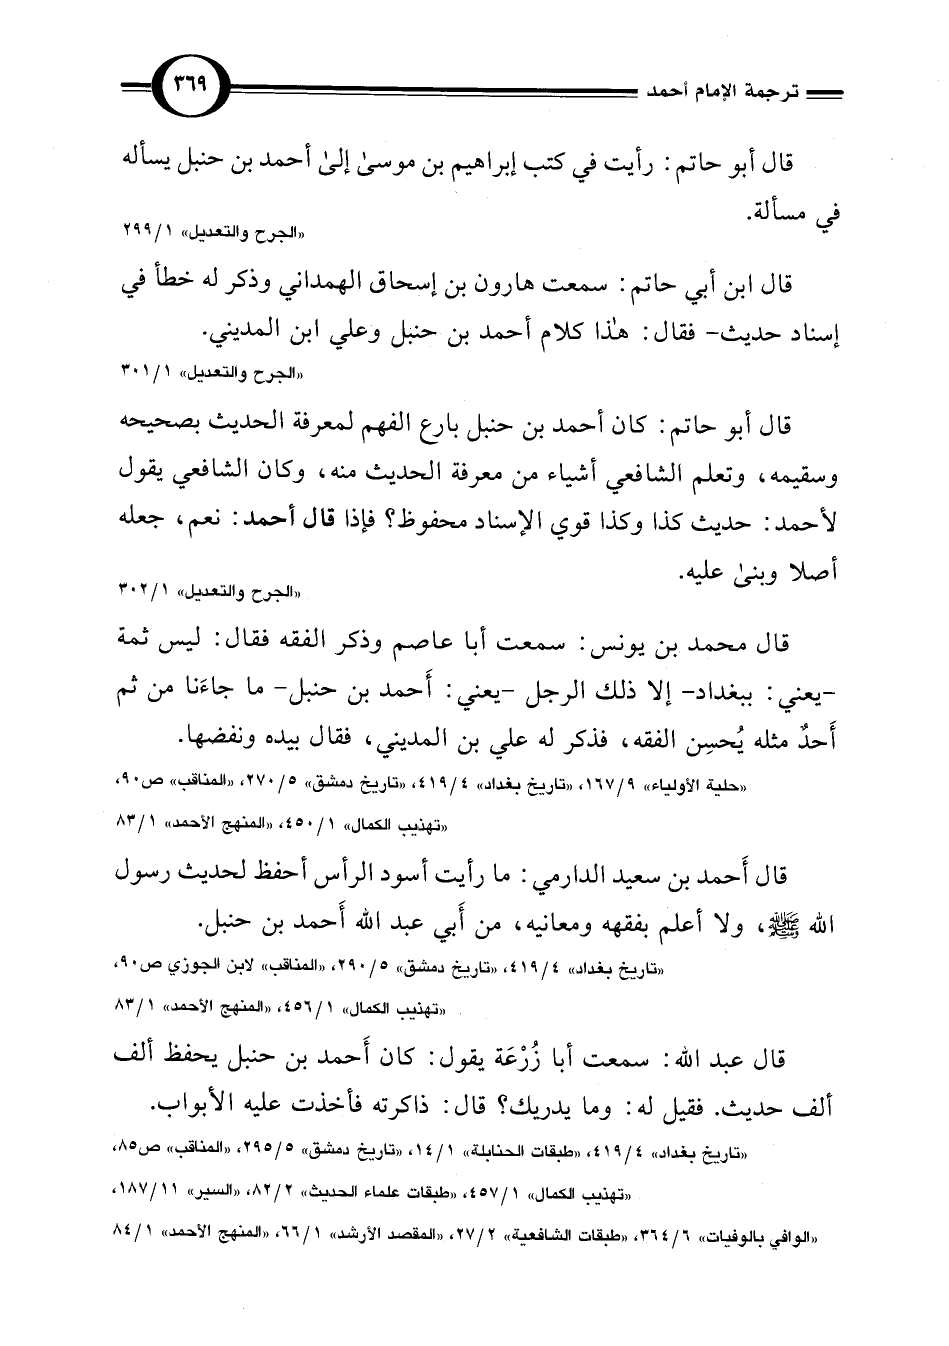 ترجمة الإمام أحمد ٣٦٩
قال أبو حاتم: رأيت في كتب إبراهيم بن موسىٰ إلىٰ أحمد بن حنبل يسأله
في مسألة.
«الجرح والتعديل» ٢٩٩/١
قال ابن أبي حاتم: سمعت هارون بن إسحاق الهمداني وذكر له خطأ في
إسناد حديث- فقال: هٰذا كلام أحمد بن حنبل وعلي ابن المديني.
«الجرح والتعديل» ٣٠١/١
قال أبو حاتم: كان أحمد بن حنبل بارع الفهم لمعرفة الحديث بصحيحه
وسقيمه، وتعلم الشافعي أشياء من معرفة الحديث منه، وكان الشافعي يقول
لأحمد: حديث كذا وكذا قوي الإسناد محفوظ؟ فإذا قال أحمد: نعم، جعله
أصلا وبنىٰ عليه.
«الجرح والتعديل» ٣٠٢/١
قال محمد بن يونس: سمعت أبا عاصم وذكر الفقه فقال: ليس ثمة
-يعني: ببغداد- إلا ذلك الرجل -يعني: أَحمد بن حنبل- ما جاءَنا من ثم
أَحدٌ مثله يُحسِن الفقه، فذكر له علي بن المديني، فقال بيده ونفضها.
«حلية الأولياء» ١٦٧/٩، «تاريخ بغداد» ٤١٩/٤، «تاريخ دمشق» ٢٧٠/٥، «المناقب» ص٩٠،
«تهذيب الكمال» ٤٥٠/١، «المنهج الأحمد» ٨٣/١
قال أَحمد بن سعيد الدارمي: ما رأيت أسود الرأس أحفظ لحديث رسول
الله ﷺ، ولا أعلم بفقهه ومعانيه، من أَبي عبد الله أَحمد بن حنبل.
«تاريخ بغداد» ٤١٩/٤، «تاريخ دمشق» ٢٩٠/٥، «المناقب» لابن الجوزي ص٩٠،
«تهذيب الكمال» ٤٥٦/١، «المنهج الأحمد» ٨٣/١
قال عبد الله: سمعت أبا زُرْعَة يقول: كان أَحمد بن حنبل يحفظ ألف
ألف حديث. فقيل له: وما يدريك؟ قال: ذاكرته فأخذت عليه الأبواب.
«تاريخ بغداد» ٤١٩/٤، «طبقات الحنابلة» ١٤/١، «تاريخ دمشق» ٢٩٥/٥، «المناقب» ص٨٥،
«تهذيب الكمال» ٤٥٧/١، «طبقات علماء الحديث» ٨٢/٢، «السير» ١٨٧/١١،
«الوافي بالوفيات» ٣٦٤/٦، «طبقات الشافعية» ٢٧/٢، «المقصد الأرشد» ٦٦/١، «المنهج الأحمد» ٨٤/١